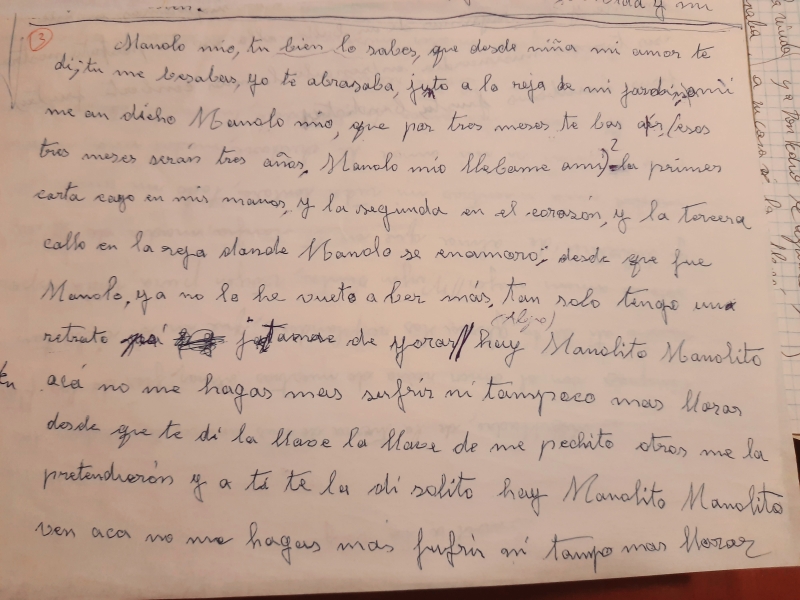 y mi
3
Manolo mio, tu bien lo sabes, que desde niña mi amor te
di, tu me besabas, yo te abrasaba, juto a la reja de mi jardin, ami
me an dicho Manolo mio, que por tres meses te bas air, (esos
tres meses serán tres años, Manolo mío llebame ami) 2 la primer
carta cayo en mis manos, y la segunda en el corazón, y la tercera
callo en la reja dande Manolo se enamoro; desde que fue
Manolo, ya no lo he vueto a ber más, tan solo tengo un
retrato de yorar // hay Manolito Manolito
acá no me hagas mas sufrir ni tampoco mas lloras
desde que te di la llave la llave de me pechito otros me la
pretendierón y a tí te la di solito hay Manolito Manolito
ven aca no me hagas más fufrir ni tampo mas llorar